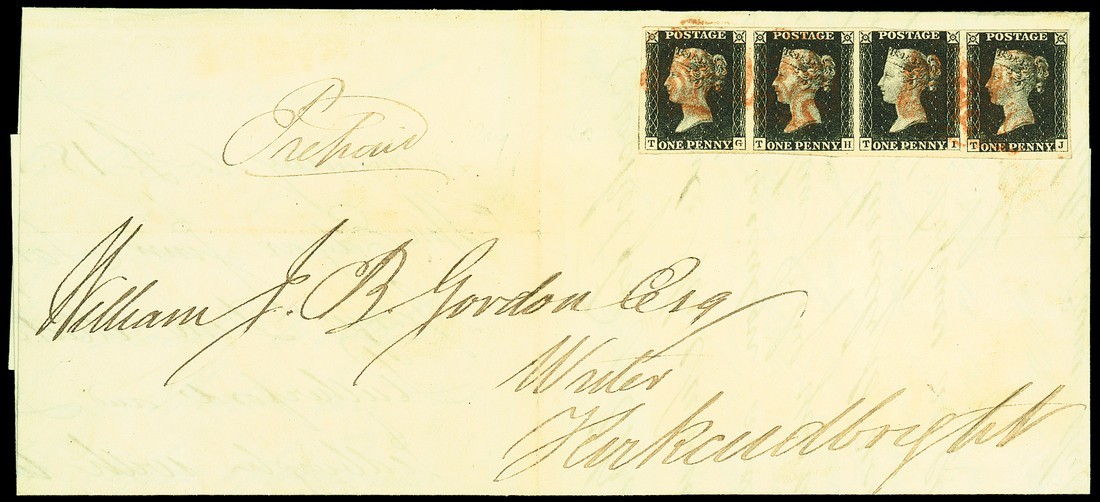 POSTAGE POSTAGE POSTAGE POSTAGE
T ONE PENNY G T ONE PENNY H T ONE PENNY I T ONE PENNY J
Prepaid
William J. B. Gordon Esq
Writer
Kirkcudbright